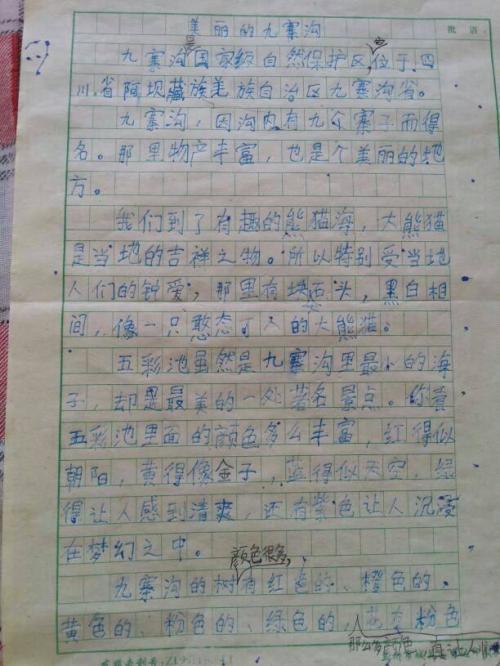 美丽的九寨沟
批语
九寨沟是国家级自然保护区,位于四
川省阿坝藏族羌族自治区九寨沟省。
九寨沟,因沟内有九个寨子而得
名。那里物产丰富,也是个美丽的地
方。
我们到了有趣的熊猫海,大熊猫
是当地的吉祥之物。所以特别受当地
人们的钟爱,那里有块石头,黑白相
间,像一只憨态可人的大熊猫。
五彩池虽然是九寨沟里最小的海
子,却是最美的一处著名景点。你看
五彩池里面的颜色多么丰富,红得似
朝阳,黄得像金子,蓝得似天空,绿
得让人感到清爽,还有紫色让人沉浸
在梦幻之中。
颜色很多,
九寨沟的树有红色的、橙色的、
黄色的、粉色的、绿色的,粉色
那么多颜色,真让人